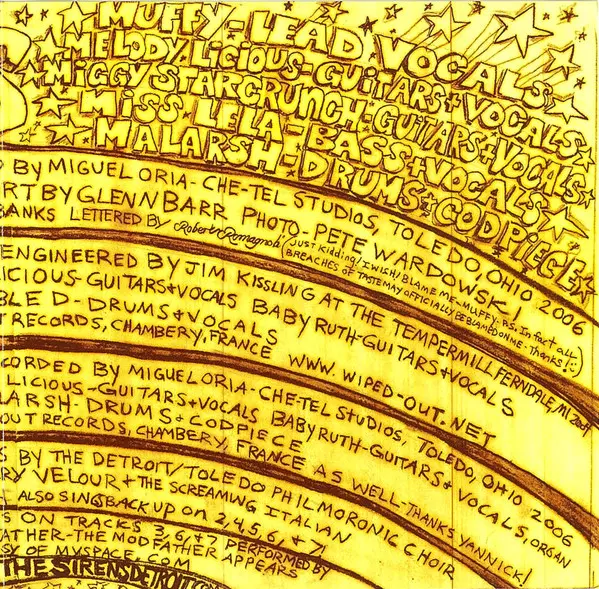 MUFFY-LEAD VOCALS
MELODY LICIOUS-GUITARS+VOCALS
MIGGY STARCRUNCH-GUITARS+VOCALS
MISS LELA-BASS+VOCALS
MALARSH-DRUMS+CODPIECE
BY MIGUEL ORIA-CHE-TEL STUDIOS, TOLEDO, OHIO 2006
ART BY GLENN BARR PHOTO-PETE WARDOWSKI
BANKS LETTERED BY Robert Romagnoli (JUST KIDDING! I WISH! BLAME ME-MUFFY. P.S. IN fact all
BREACHES OF TASTE MAY OFFICIALLY BE BLAMED ON ME-THANKS!:-)
ENGINEERED BY JIM KISSLING AT THE TEMPERMILL, FERNDALE, MI
ICIOUS-GUITARS+VOCALS BABY RUTH-GUITARS+VOCALS
BLED-DRUMS+VOCALS
T RECORDS, CHAMBERY, FRANCE WWW.WIPED-OUT.NET
CORDED BY MIGUEL ORIA-CHE-TEL STUDIOS, TOLEDO, OHIO 2006
LICIOUS-GUITARS+VOCALS BABY RUTH-GUITARS+VOCALS, ORGAN
LARSH-DRUMS+CODPIECE
OUT RECORDS, CHAMBERY, FRANCE AS WELL-THANKS YANNICK!
S BY THE DETROIT/TOLEDO PHILMORONIC CHOIR
RY VELOUR+THE SCREAMING ITALIAN
ALSO SING BACK UP ON 2,4,5,6,+7!
S ON TRACKS 3,6,+7 PERFORMED BY
FATHER-THE MODFATHER APPEARS
SY OF MYSPACE.COM
THESIRENSDETROIT.COM